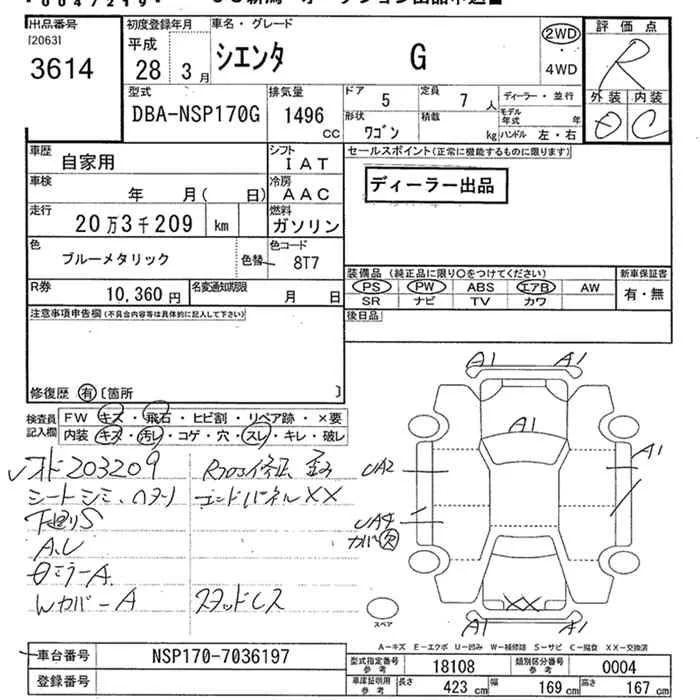 出品番号
[2063]
3614
初度登録年月
平成
28年 3月
車名・グレード
シエンタ G
2WD
・
4WD
評価点
R
外装 内装
D C
型式
DBA-NSP170G
排気量
1496 CC
ドア 5
定員 7人
ディーラー・並行
形状 ワゴン
積載 kg
モデル年式 年
ハンドル 左・右
車歴
自家用
シフト
IAT
セールスポイント(正常に機能するものに限ります)
ディーラー出品
車検
年 月( 日)
冷房
AAC
走行
20万3千209 km
燃料
ガソリン
色
ブルーメタリック
色替
色コード
8T7
R券
10,360 円
名変通知期限
月 日
装備品(純正品に限り○をつけてください)
新車保証書
PS PW ABS エアB AW
SR ナビ TV カワ
有・無
注意事項申告欄(不具合内容等は具体的に記入して下さい)
後日品
修復歴 有 [箇所 ]
検査員記入欄
FW キズ・飛石・ヒビ割・リペア跡・×要
内装 キズ・汚レ・コゲ・穴・スレ・キレ・破レ
オド203209
シートシミ、ヘタリ
エンドパネルXX
下廻りS
A,U
Wカバー A
スタッドレス
A1 A1
A1
UA2
A1
UA4
カバー欠
XX
A1 A1
スペア
A-キズ E-エクボ U-凹み W-補修跡 S-サビ C-腐食 XX-交換済
車台番号
NSP170-7036197
登録番号
型式指定番号 参考
18108
類別区分番号 参考
0004
車庫証明用 参考
長さ 423 cm 幅 169 cm 高さ 167 cm